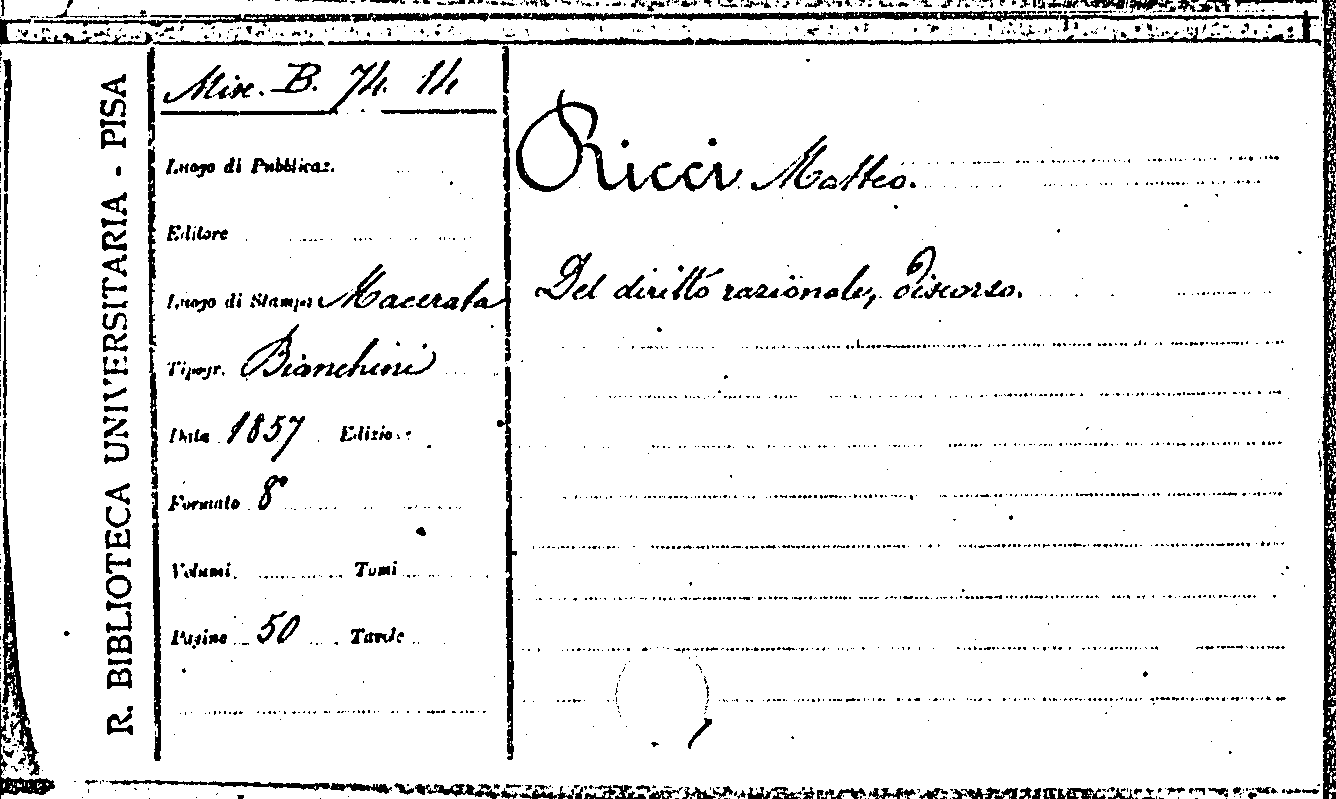 R. BIBLIOTECA UNIVERSITARIA - PISA
Misc. B. 74. 14
Luogo di Pubblicaz.
Editore
Luogo di Stampa Macerata
Tipogr. Bianchini
Data 1857 Edizione
Formato 8°
Volumi Tomi
Pagine 50 Tavole
Ricci Matteo.
Del diritto razionale, discorso.